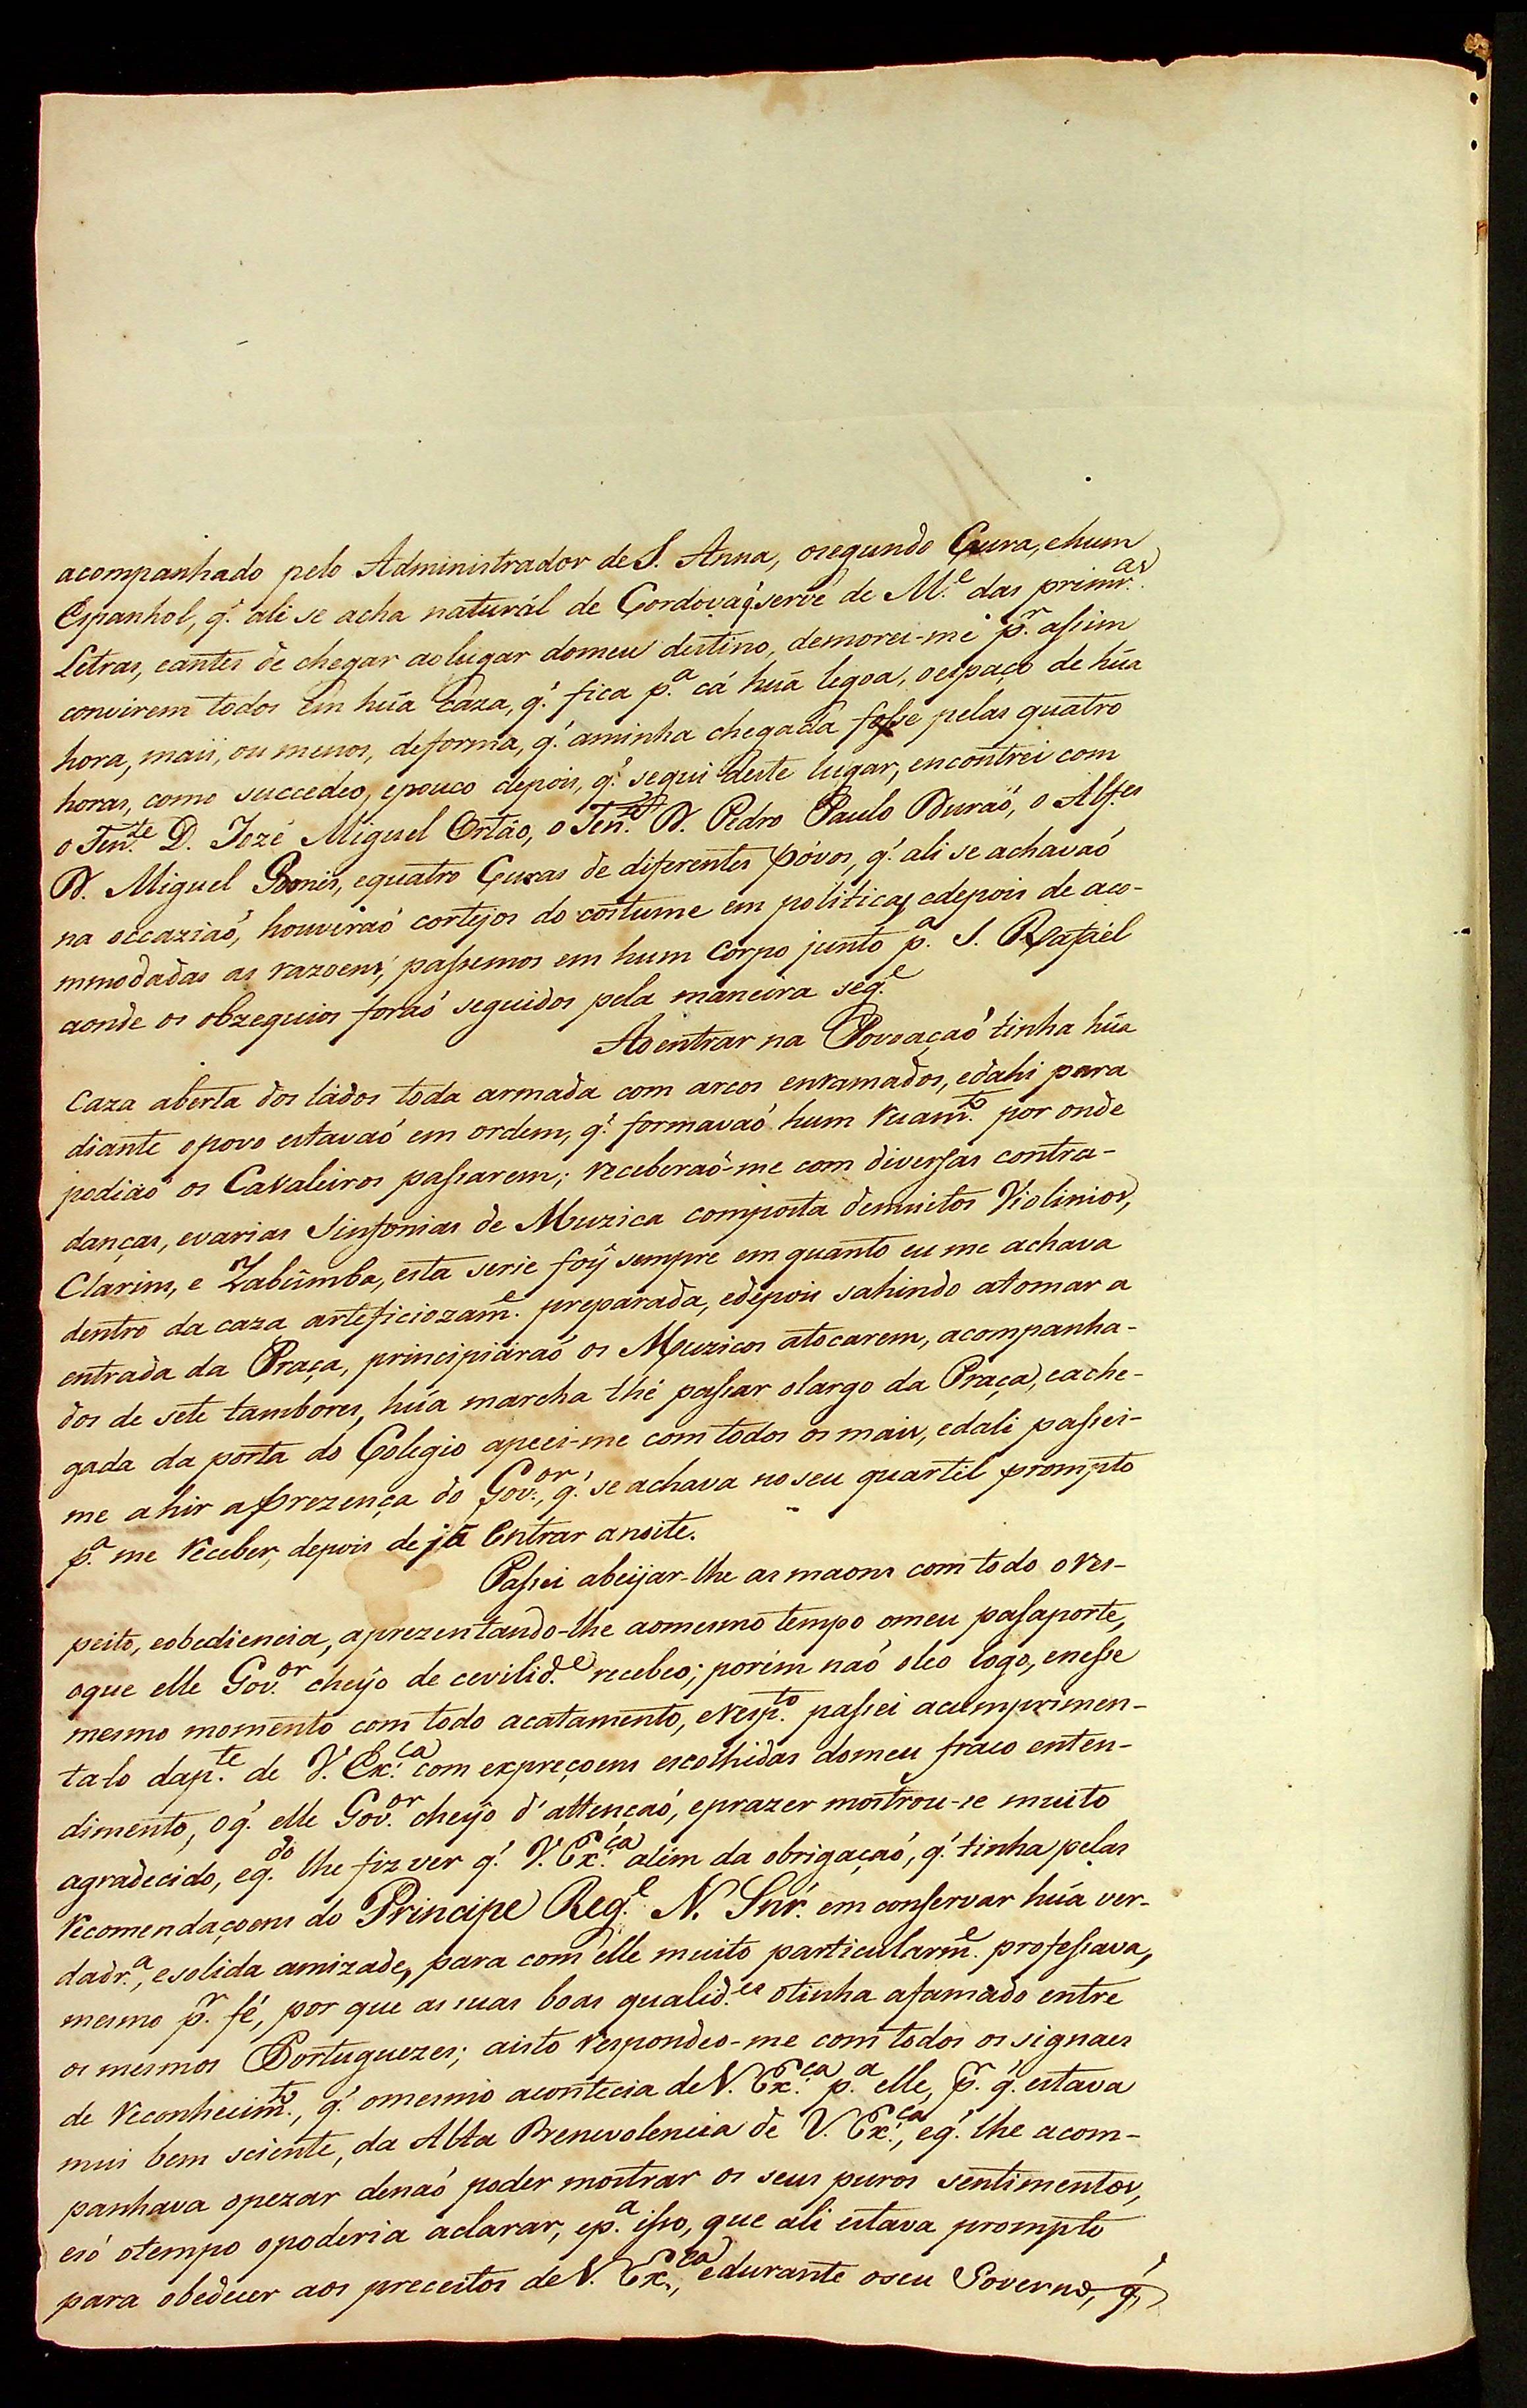 acompanhado pelo Administrador de S. Anna, osegundo Cura, ehum
Espanhol, q.' ali se acha naturál de Cordova q' serve de M.e das primr.as
Letras, eantes de chegar aolugar domeu distino, demorei-me p.r assim
convirem todos em húa Caza, q.' fica p.a cá huá legoa, oespaço de húa
hora, mais, ou menos, deforma, q.' aminha chegada fosse pelas quatro
horas, como succedeo, epouco depois, q.' segui deste lugar, encontrei com
o Ten.te D. Jozé Miguel Ortáo, o Ten.te D. Pedro Paulo Duraó, o Alf.es
D. Miguel Bonis, equatro Curas de diferentes póvos, q.' ali se achavaó
na occaziaó, houveraó cortejos do costume em politicas edepois de aco-
mmodadas as razoens, passemos em hum Corpo junto p.a S. Rafaél
aonde os obzequios foraó seguidos pela maneira seg.e
Aoentrar na Povoaçaó tinha húa
Caza aberta dos lados toda armada com arcos enramados, edahi para
diante opovo estavaó em ordem, q.' formavaó hum ruam.to por onde
podiaó os Cavaleiros passarem; receberaó-me com diversas contra-
danças, evarias Sinfonias de Muzica composta demuitos Violinios,
Clarins, e Zabumba, esta serie foy sempre em quanto eu me achava
dentro da caza arteficiozam.e preparada, edepois sahindo atomar a
entrada da Praça, principiáraó os Muzicos atocarem, acompanha-
dos de sete tambores, húa marcha thé passar olargo da Praça, eache-
gada da porta do Colegio apeei-me com todos os mais, edali passei-
me ahir aprezença do Gov.or, q.' se achava no seu quartel prompto
p.a me receber, depois de já entrar anoite.
Passei abeijar-lhe as maons com todo ores-
peito, eobediencia, aprezentando-lhe aomesmo tempo omeu passaporte,
oque elle Gov.or cheyo de cevilid.e recebeo; porém naó oleo logo, enesse
mesmo momento com todo acatamento, eresp.to passei acumprimen-
talo dap.te de V. Ex.ca com expreçoens escolhidas domeu fraco enten-
dimento, oq.' elle Gov.or cheyo d'attençaó, eprazer mostrou-se muito
agradecido, eq.do lhe fiz ver q.' V. Ex.ca alem da obrigaçaó, q.' tinha pelas
recomendaçoens do Principe Reg.e N. Snr.' em conservar húa ver-
dadr.a, esolida amizade, para com elle muito particularm.e professava,
mesmo p.r fé, por que as suas boas qualid.es otinha afamado entre
os mesmos Portuguezes; aisto respondeo-me com todos os signaes
de reconhecim.to, q.' omesmo acontecia de V. Ex.ca p.a elle, p.r q.' estava
mui bem sciente, da Alta Benevolencia de V. Ex.ca, eq.' lhe acom-
panhava opezar denaó poder mostrar os seus puros sentimentos,
esó otempo opoderia aclarar, ep.a isso, que ali estava prompto
para obedecer aos preceitos de V. Ex.ca, edurante oseu Governo, q.'